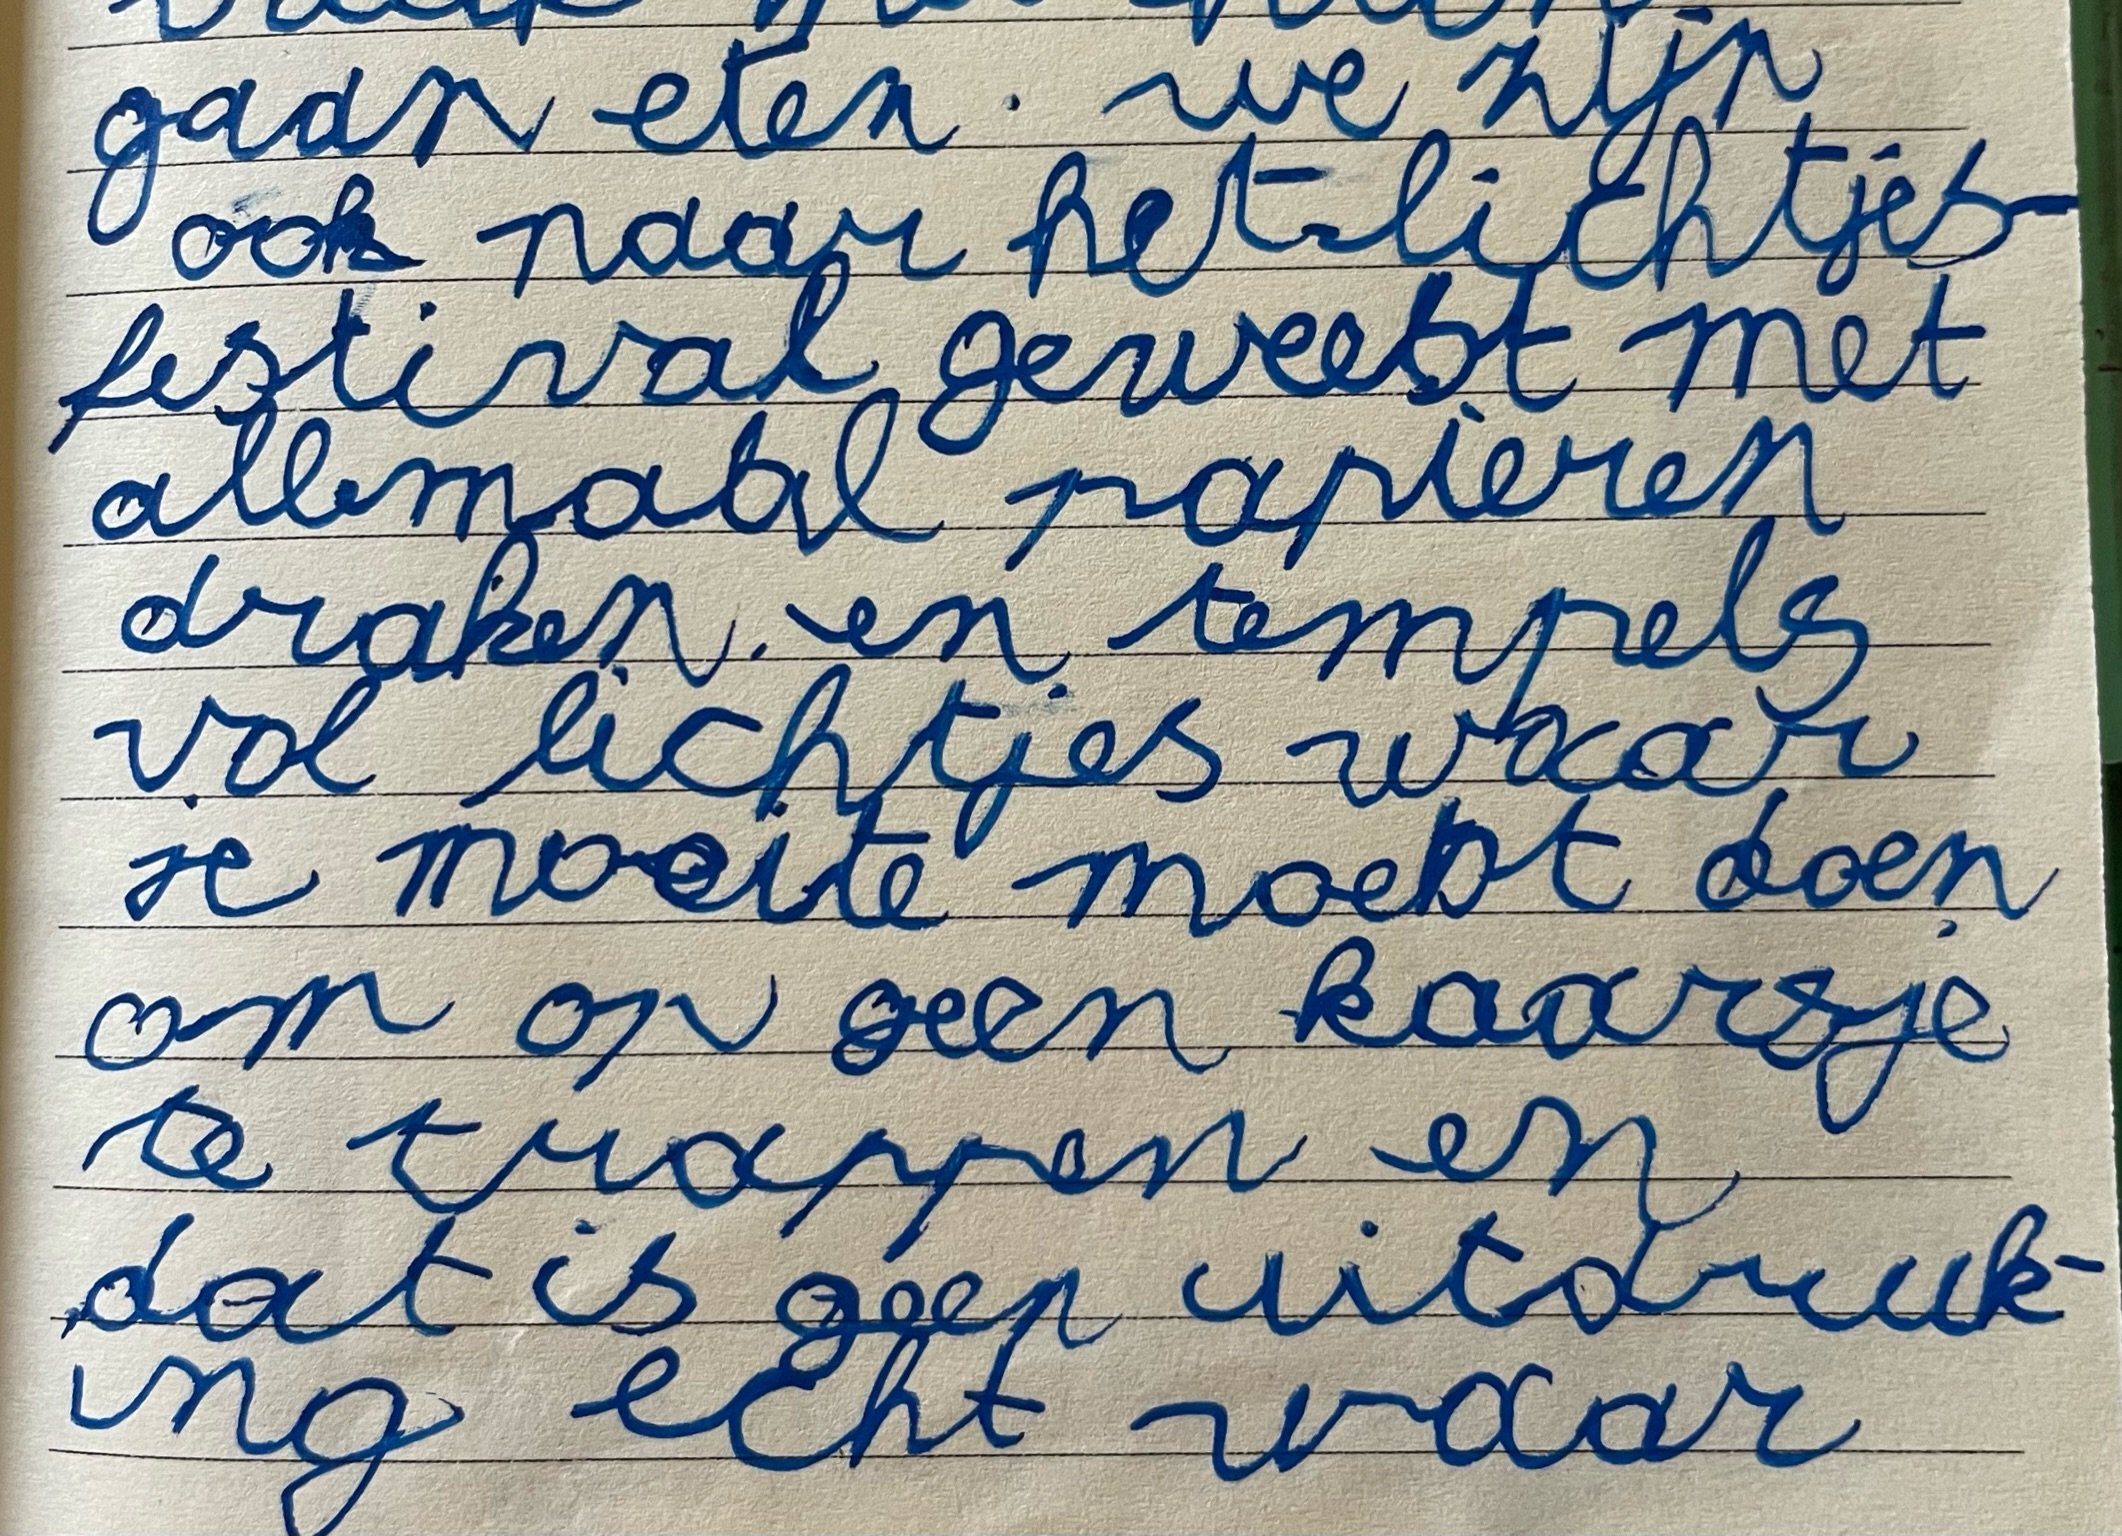 gaan eten. we zijn
ook naar het lichtjes-
festival geweest met
allemaal papieren
draken. en tempels
vol lichtjes waar
je moeite moest doen
om op geen kaarsje
te trappen en
dat is geen uitdruk-
ing echt waar